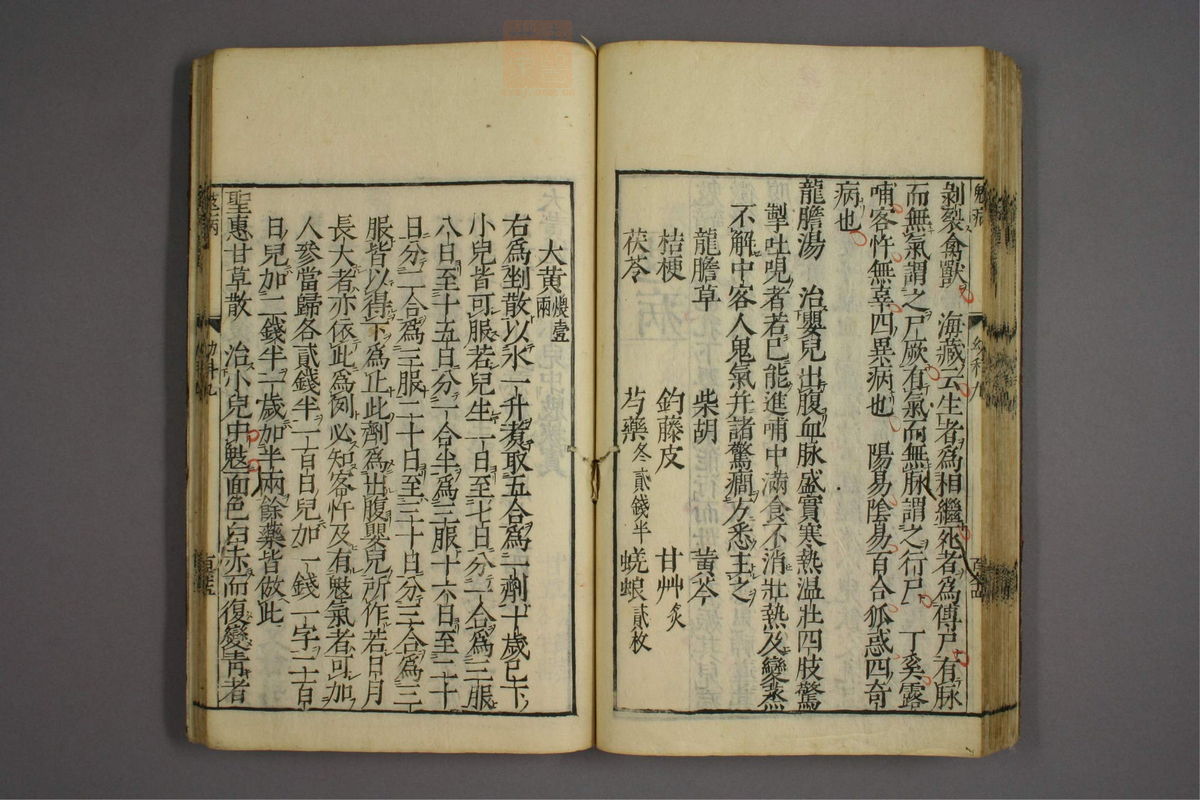 剝裂禽獸　海藏云生者為相繼死者為傳尸有脉
而無氣謂之尸厥有氣而無脉謂之行尸　丁奚露
哺客忤無辜四異病也　陽易陰易百合狐惑四奇
病也
龍膽湯　治嬰兒出腹血脉盛實寒熱温壯四肢驚
掣吐哯者若已能進哺中滿食不消壯熱及變蒸
不解中客人鬼氣并諸驚癇方悉主之
龍膽草　柴胡　黃芩
桔梗　釣藤皮　甘艸炙
茯苓　芍藥各貳錢半　蜣蜋貳枚
大黃煨壹兩
右為剉散以水一升煮取五合為一劑十歲已下
小兒皆可服若兒生一日至七日分一合為三服
八日至十五日分一合半為三服十六日至二十
日分二合為三服二十日至三十日分三合為三
服皆以得下為止此劑為出腹嬰兒所作若日月
長大者亦依此為例必知客忤及有鬾氣者可加
人參當歸各貳錢半一百日兒加一錢一字二百
日兒加二錢半一歲加半兩餘藥皆倣此
聖惠甘草散　治小兒中鬾面色白赤而復變青者
鬾病
幼科九